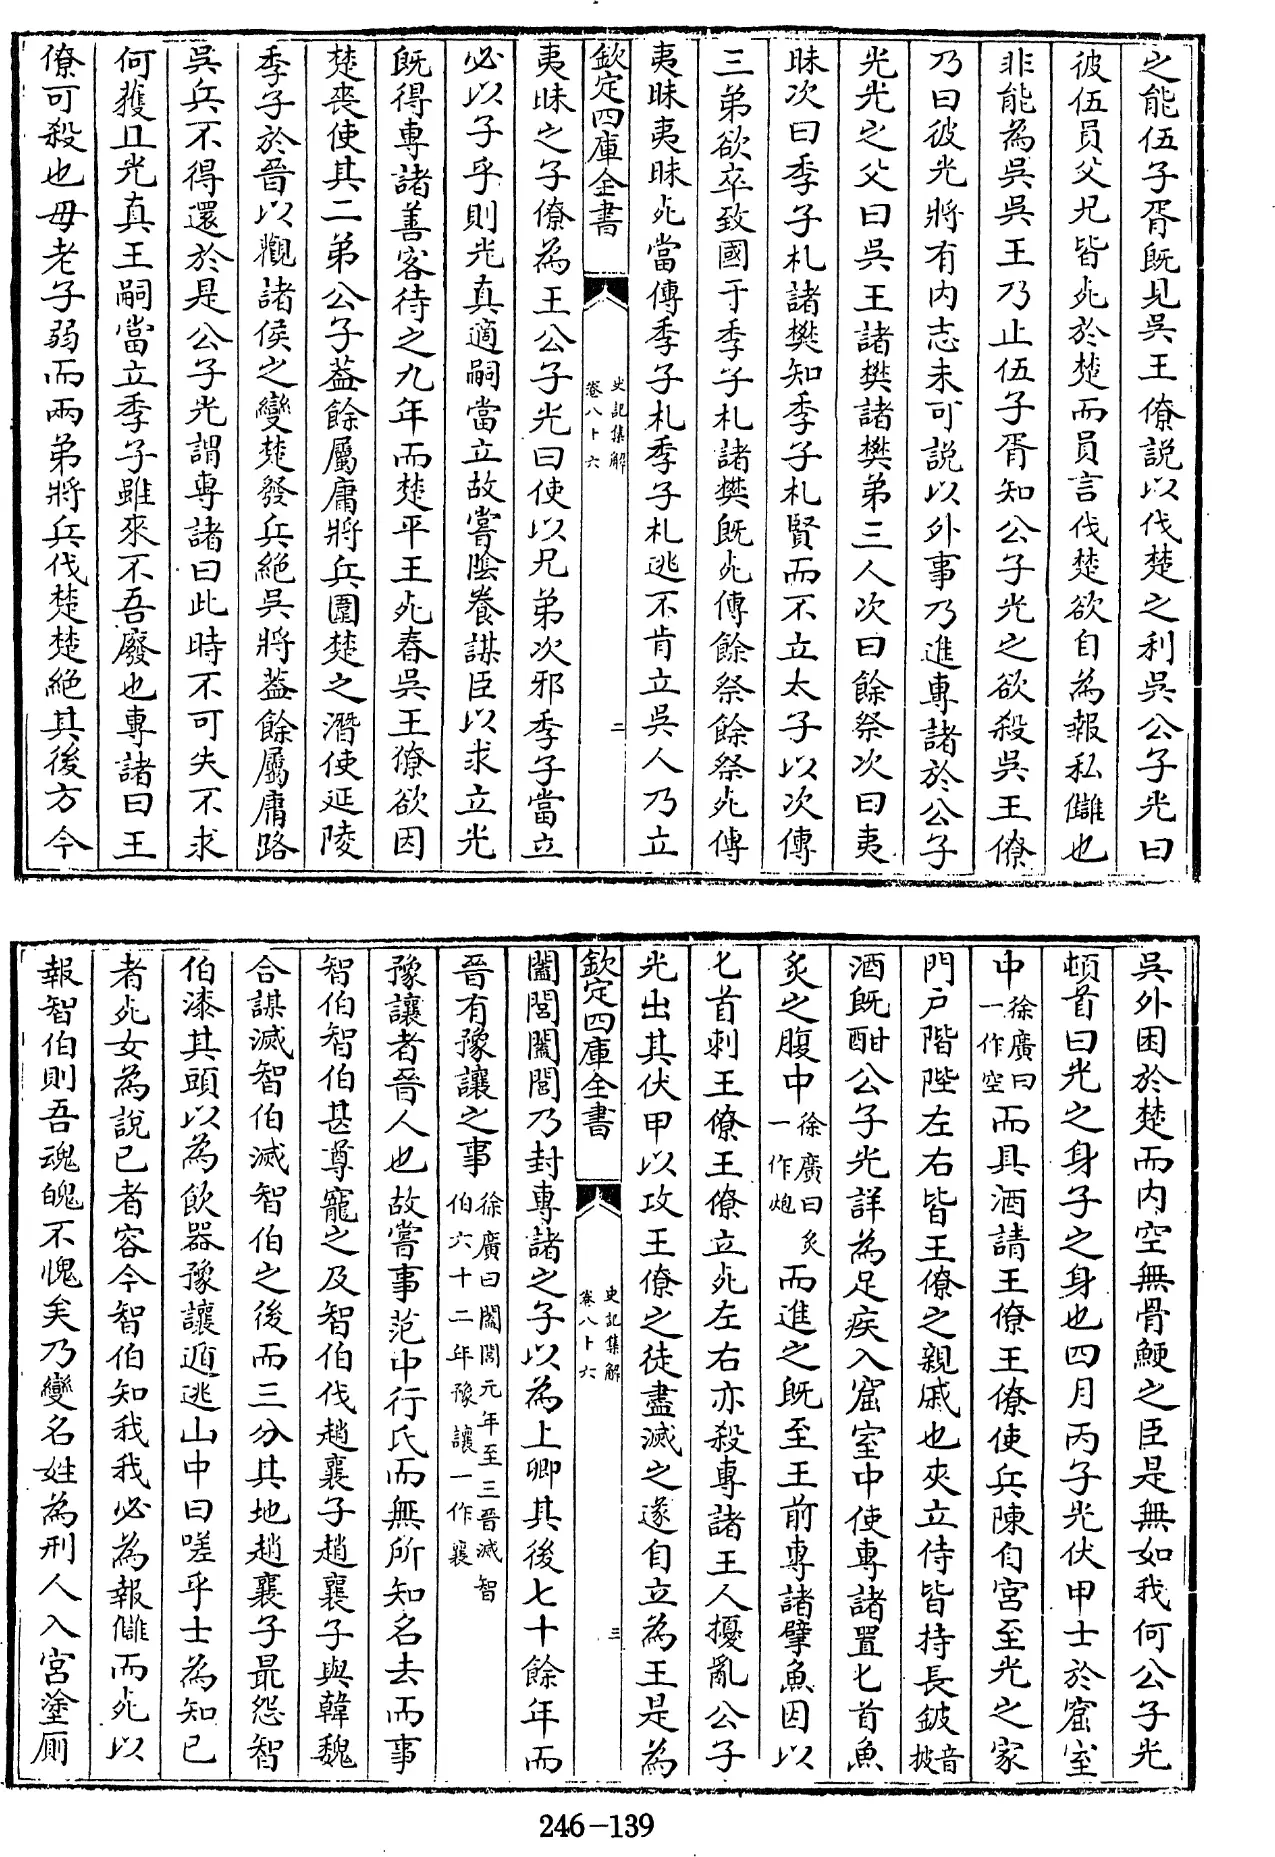 之能伍子胥既見吳王僚說以伐楚之利吳公子光曰
彼伍員父兄皆死於楚而員言伐楚欲自為報私讎也
非能為吳吳王乃止伍子胥知公子光之欲殺吳王僚
乃曰彼光將有内志未可說以外事乃進專諸於公子
光光之父曰吳王諸樊諸樊弟三人次曰餘祭次曰夷
眛次曰季子札諸樊知季子札賢而不立太子以次傳
三弟欲卒致國于季子札諸樊既死傳餘祭餘祭死傳
夷眛夷眛死當傳季子札季子札逃不肯立吳人乃立
欽定四庫全書
史記集解
卷八十六
二
夷眛之子僚為王公子光曰使以兄弟次邪季子當立
必以子乎則光真適嗣當立故嘗隂養謀臣以求立光
既得專諸善客待之九年而楚平王死春吳王僚欲因
楚喪使其二弟公子葢餘屬庸將兵圍楚之潛使延陵
季子於晉以觀諸侯之變楚發兵絶吳將葢餘屬庸路
吳兵不得還於是公子光謂專諸曰此時不可失不求
何獲且光真王嗣當立季子雖來不吾廢也專諸曰王
僚可殺也母老子弱而兩弟將兵伐楚楚絶其後方今
吳外困於楚而内空無骨鯁之臣是無如我何公子光
頓首曰光之身子之身也四月丙子光伏甲士於窟室
中徐廣曰一作空而具酒請王僚王僚使兵陳自宮至光之家
門戶階陛左右皆王僚之親戚也夾立侍皆持長鈹音披
酒既酣公子光詳為足疾入窟室中使專諸置匕首魚
炙之腹中徐廣曰炙一作炮而進之既至王前專諸擘魚因以
匕首刺王僚王僚立死左右亦殺專諸王人擾亂公子
光出其伏甲以攻王僚之徒盡滅之遂自立為王是為
欽定四庫全書
史記集解
卷八十六
三
闔閭闔閭乃封專諸之子以為上卿其後七十餘年而
晉有豫讓之事徐廣曰闔閭元年至三晉滅智伯六十二年豫讓一作襄
豫讓者晉人也故嘗事范中行氏而無所知名去而事
智伯智伯甚尊寵之及智伯伐趙襄子趙襄子與韓魏
合謀滅智伯滅智伯之後而三分其地趙襄子最怨智
伯漆其頭以為飲器豫讓遁逃山中曰嗟乎士為知已
者死女為說已者容今智伯知我我必為報讎而死以
報智伯則吾魂魄不愧矣乃變名姓為刑人入宮塗厠
246-139